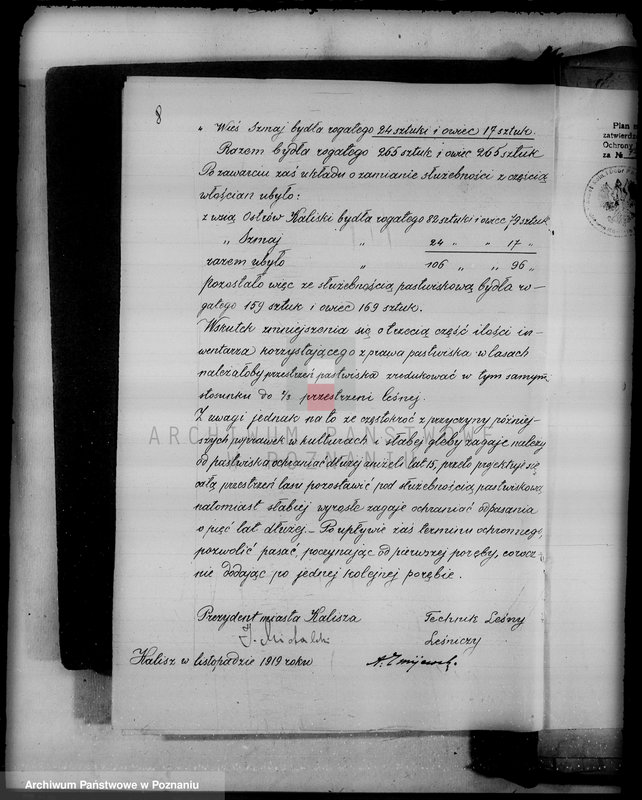 8
„ Wieś Szmaj bydła rogatego 24 sztuki i owiec 17 sztuk.
Razem bydła rogatego 265 sztuk i owiec 265 sztuk
Po zawarciu zaś układu o zamianie służebności z częścią
włościan ubyło:
z wsią Ostrów Kaliski bydła rogatego 82 sztuki i owiec 79 sztuk
„ Szmaj „ 24 „ „ 17 „
razem ubyło „ 106 „ „ 96 „
pozostało więc ze służebnością pastwiskową bydła ro-
gatego 159 sztuk i owiec 169 sztuk.
Wskutek zmniejszenia się o trzecią część ilości in-
wentarza korzystającego z prawa pastwiska w lasach
należałoby przestrzeń pastwiska zredukować w tym samym
stosunku do 2/3 przestrzeni leśnej.
Z uwagi jednak na to że częstokroć z przyczyny później-
szych poprawek w kulturach i słabej gleby zagaje należy
od pastwiska ochraniać dłużej aniżeli lat 15, przeto projektuje się
całą przestrzeń lasu pozostawić pod służebnością pastwiskową
natomiast słabiej wyrosłe zagaje ochraniać od pasania
o pięć lat dłużej. – Po upływie zaś terminu ochronnego,
pozwolić pasać, poczynając od pierwszej poręby, corocz-
nie dodając po jednej kolejnej porębie.
Prezydent miasta Kalisza
Technik Leśny
Leśniczy
Kalisz w listopadzie 1919 roku
Plan
zatwierdz
Ochrony
za №
ARCHIWUM PAŃSTWOWE
W POZNANIU
Archiwum Państwowe w Poznaniu